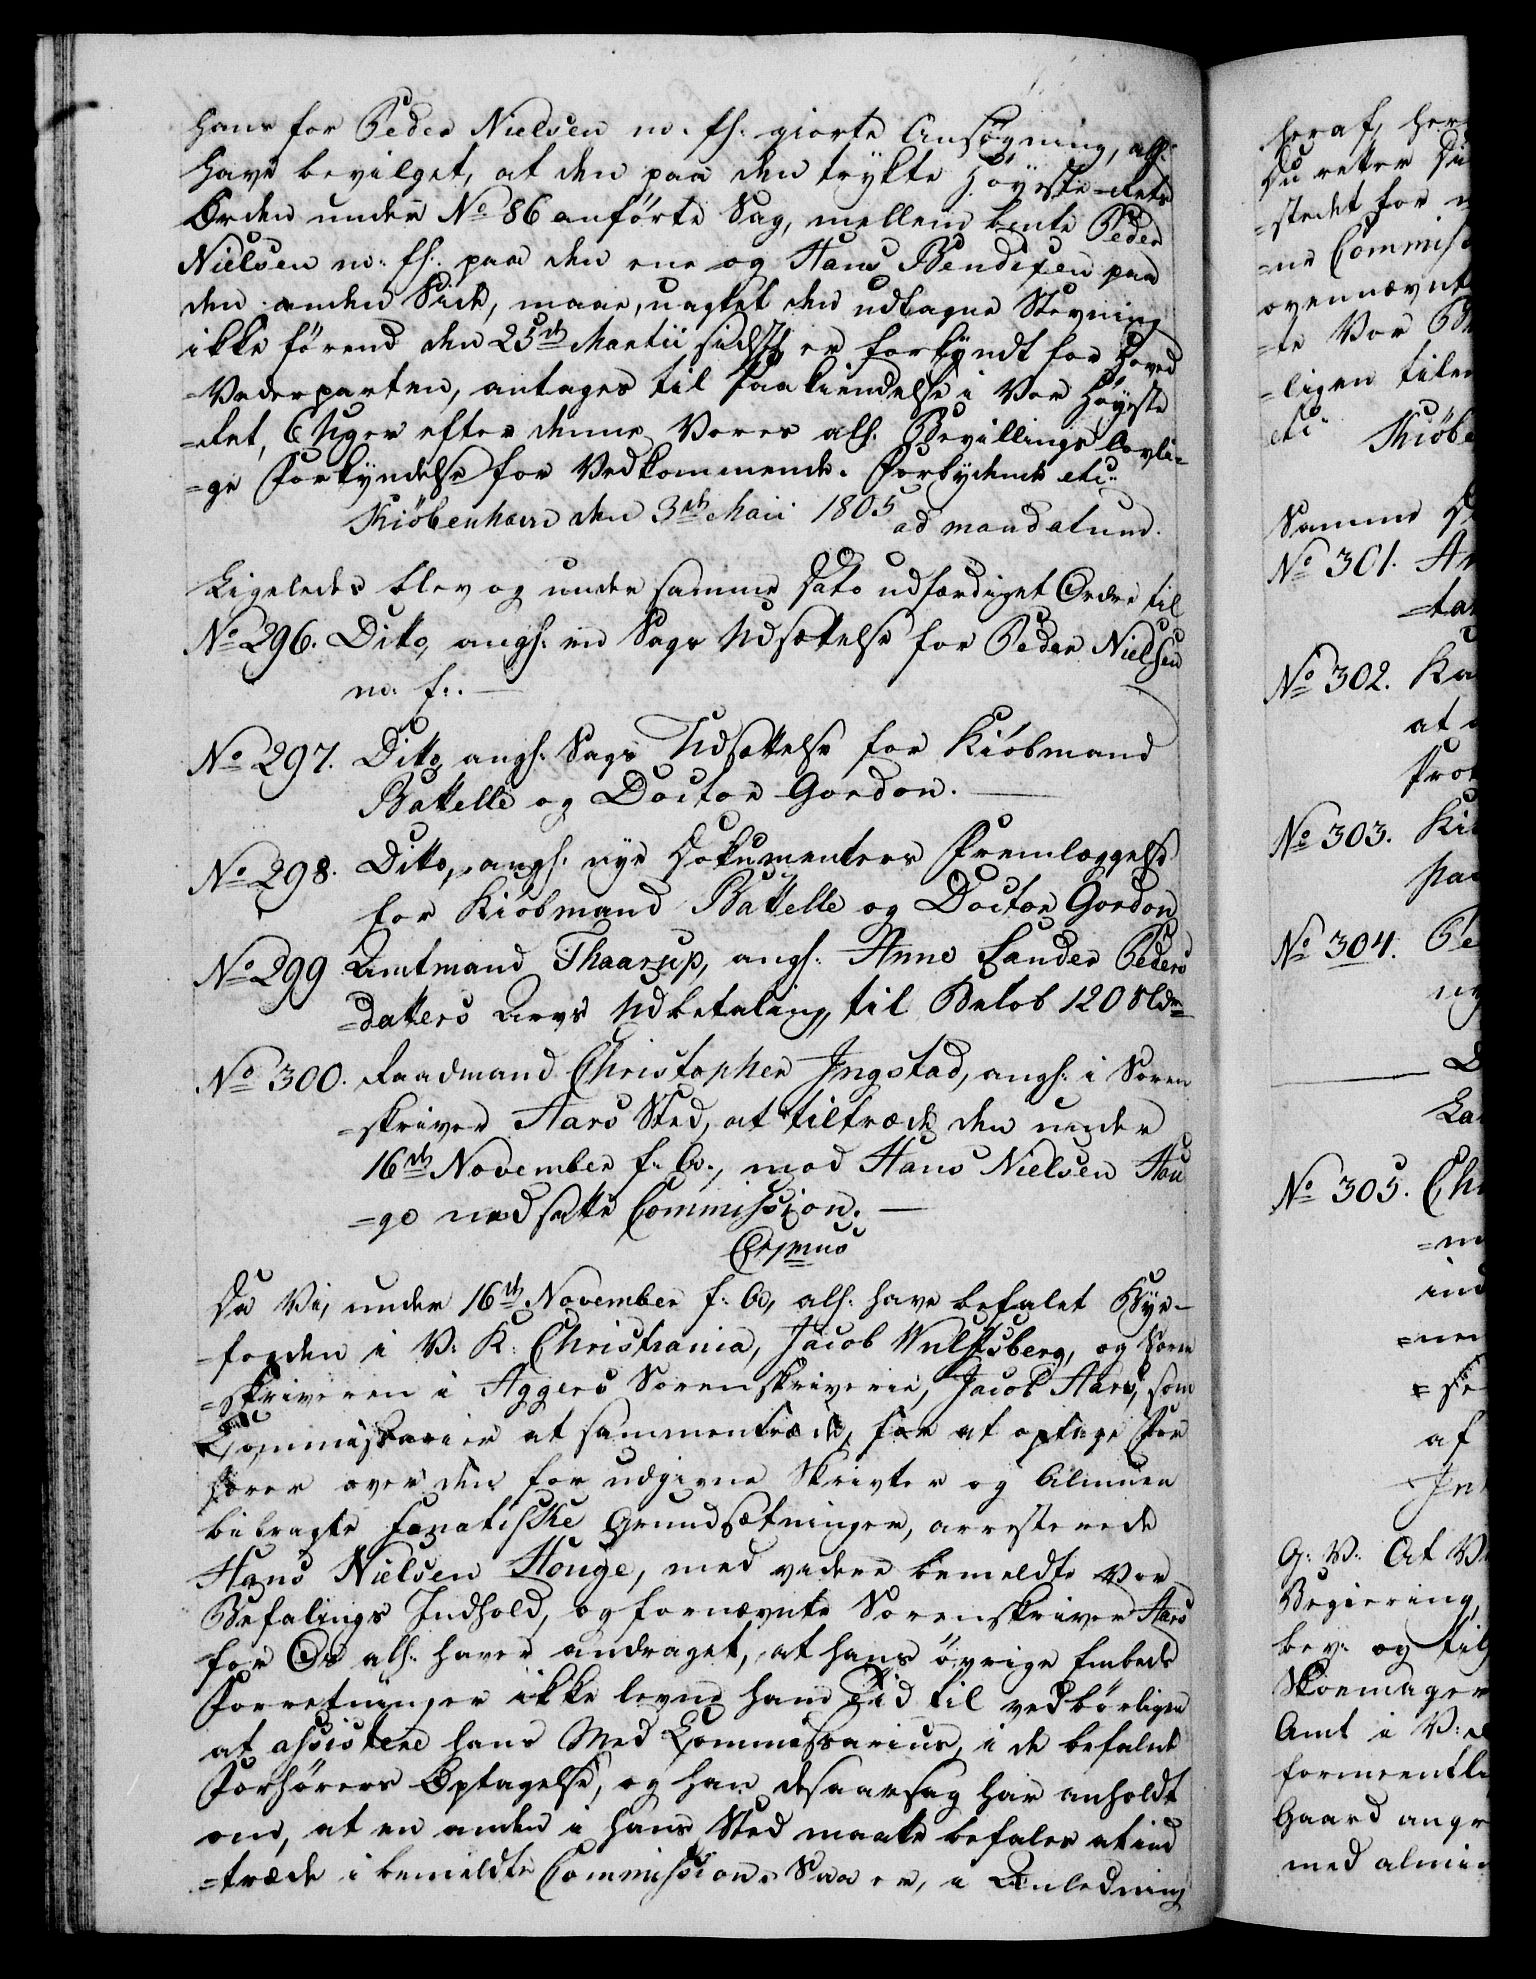 hans for Peder Nielsen m. fl: giorte Ansøgning, all:
have bevilget, at den paa den trykte Høyeste-Rets
Orden under No 86 anførte Sag, mellem bemte Peder
Nielsen m. fl: paa den ene og Hans Bendixen paa
den anden Side, maae, uagtet den udtagne Stevning
ikke førend den 25de Martii sidstl. er forkyndt for Hoved
=Vederparten, antages til Paakiendelse i Vor Høyeste
=Ret, 6 Uger efter denne Vores all: Bevillings lovli=
=ge Forkyndelse for Vedkommende. Forbydende etc:
Kiöbenhavn den 3de Maii 1805 ad mandatum.
Ligeledes blev og under samme Dato udfærdiget Ordre til
No 296. Ditto, angl: en Sags Udsættelse for Peder Nielsen
m. fl.
No 297. Ditto, angl: Sags Udsættelse for Kiöbmand
Battelle og Doctor Gordon.
No 298. Ditto, angl: nye Dokumenters Fremlæggelse
for Kiöbmand Battelle og Doctor Gordon
No 299 Amtmand Thaarup, angl: Anne Sander Peders
=datters Arvs Udbetaling, til Beløb 120 Rdr
No 300. Raadmand Christopher Ingstad, angl: i Soren
=skriver Aars Sted, at tiltræde den under
16de November f: A:, mod Hans Nielsen Hou
=ge nedsatte Commission.
Expmus
Da Vi, under 16de November f: A:, all: have befalet Bye-
=fogden i V: K: Christiania, Jacob Wulfsberg, og Soren
=skriveren i Aggers Sorenskriverie, Jacob Aars, som
Commissarier at sammentræde, for at optage For
hører over den for udgivne Skrivter og Almuen
bibragte fanatiske Grundsætninger, arresterede
Hans Nielsen Houge, med videre bemeldte Vor
Befalings Indhold, og fornævnte Sorenskriver Aars
for Os all: haver andraget, at hans øvrige Embeds
Forretninger ikke levne ham Tid til vedbørligen
at assistere hans Med Commissarius, i de befalede
Forhørers Optagelse, og han desaarsag har anholdt
om, at en anden i hans Sted maatte befales at ind
=træde i bemeldte Commission; Saa er, i Anledning
heraf, her
Du retter Di
=stedet for
=ne Commis
ovennævnte
=te Vor
=ligen tile
etc: Kiöbe
Samme D
No 301. An
=tar
No 302. Ka
at
Pro
No 303. Ki
paa
No 304. Pe
ny
D
La
No 305. Chr
=m
ind
=nen
=ste
af
In
G: V: At V
Begiering,
bev: og till
Skomager
Amt i V:
formeentli
Gaard angr
med almin